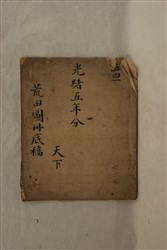 光緒五年分
天下
荒田圖冊底稿